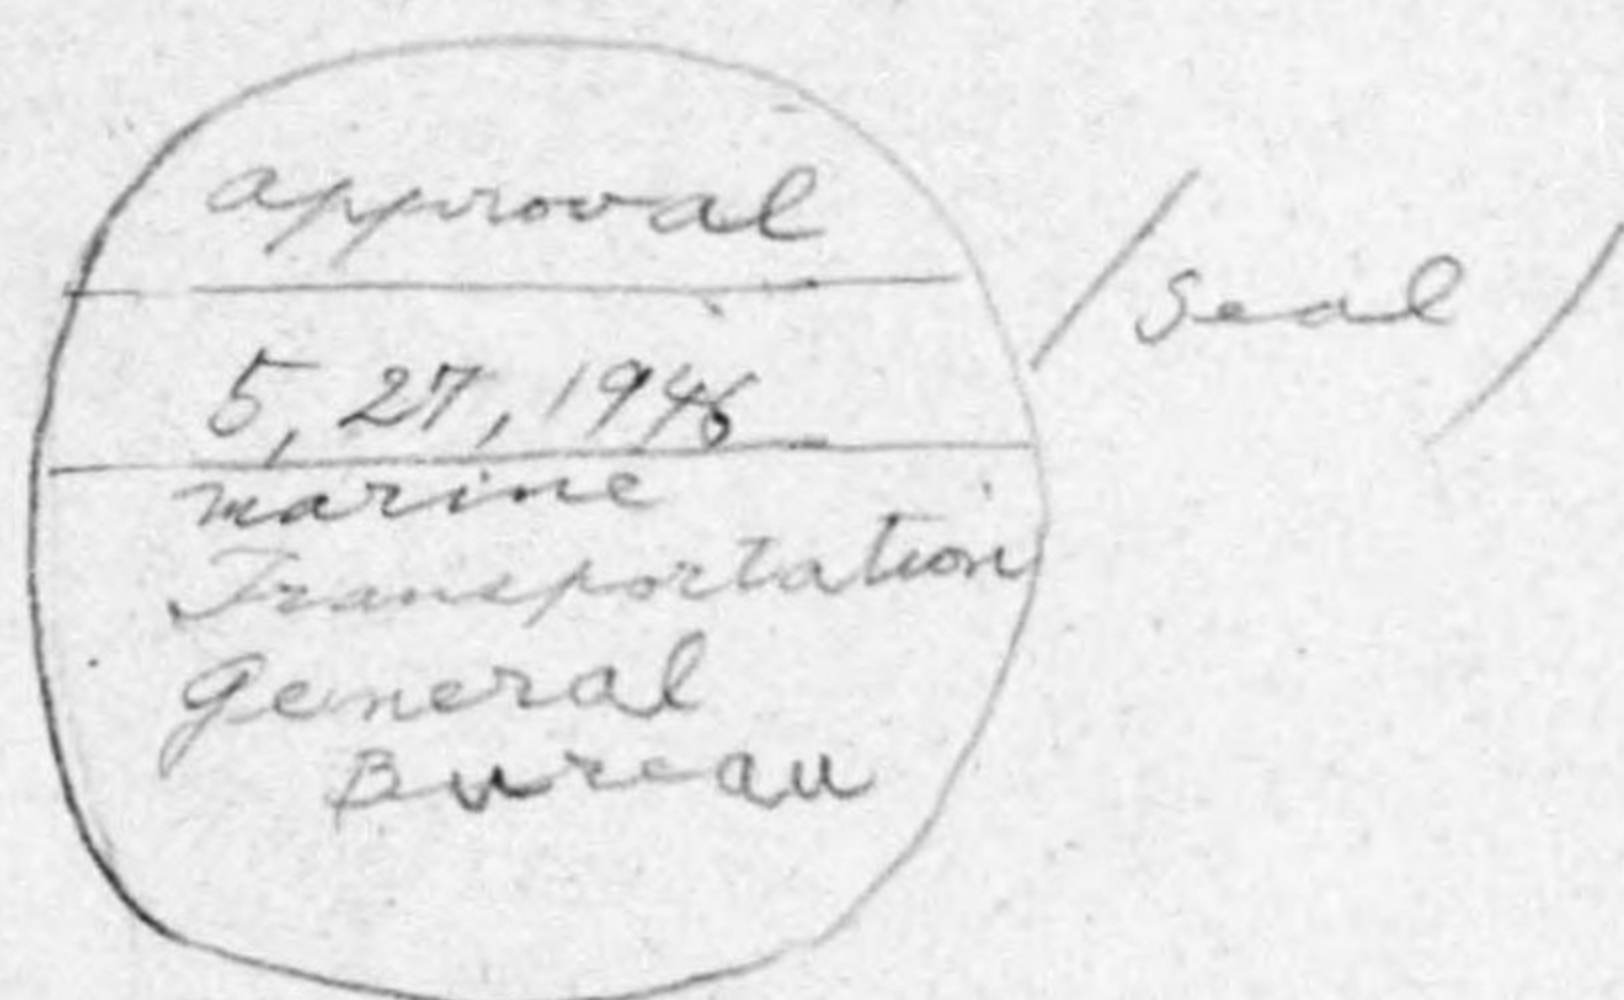 approval
/ Seal /
5, 27, 1946
marine
Transportation
General
Bureau